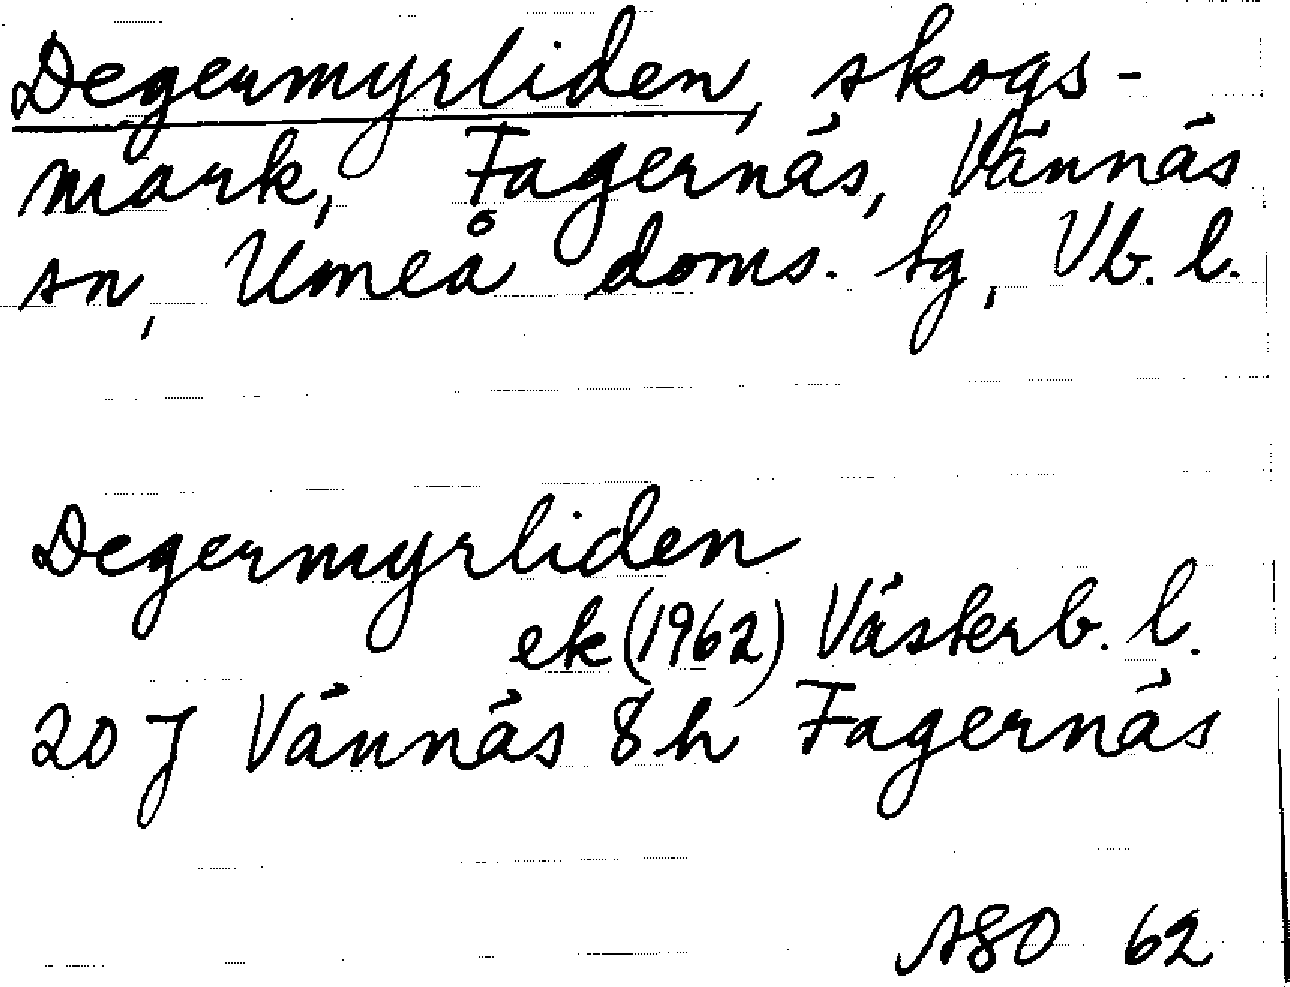 Degermyrliden, skogs-
mark, Fagernäs, Vännäs
sn, Umeå doms. sg, Vb. l.
Degermyrliden
ek (1962) Västerb. l.
20 J Vännäs 8h Fagernäs
ASO 62